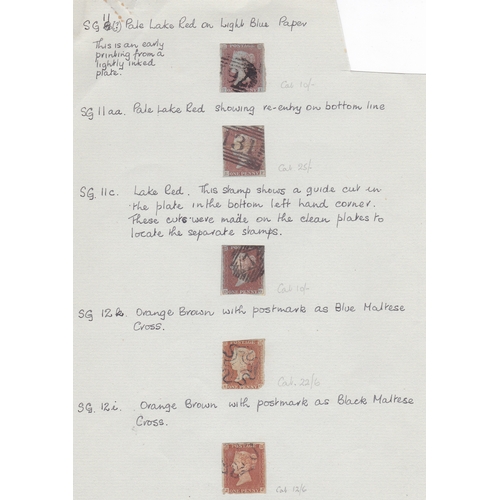 SG 11 (j) Pale Lake Red on Light Blue Paper
This is an early
printing from a
lightly inked
plate.
Cat 10/-
SG 11aa. Pale Lake Red showing re-entry on bottom line
Cat 25/-
SG 11c. Lake Red. This stamp shows a guide cut in
the plate in the bottom left hand corner.
These cuts were made on the clean plates to
locate the separate stamps.
Cat 10/-
SG 12h. Orange Brown with postmark as Blue Maltese
Cross.
Cat. 22/6
SG. 12i. Orange Brown with postmark as Black Maltese
Cross.
Cat 12/6